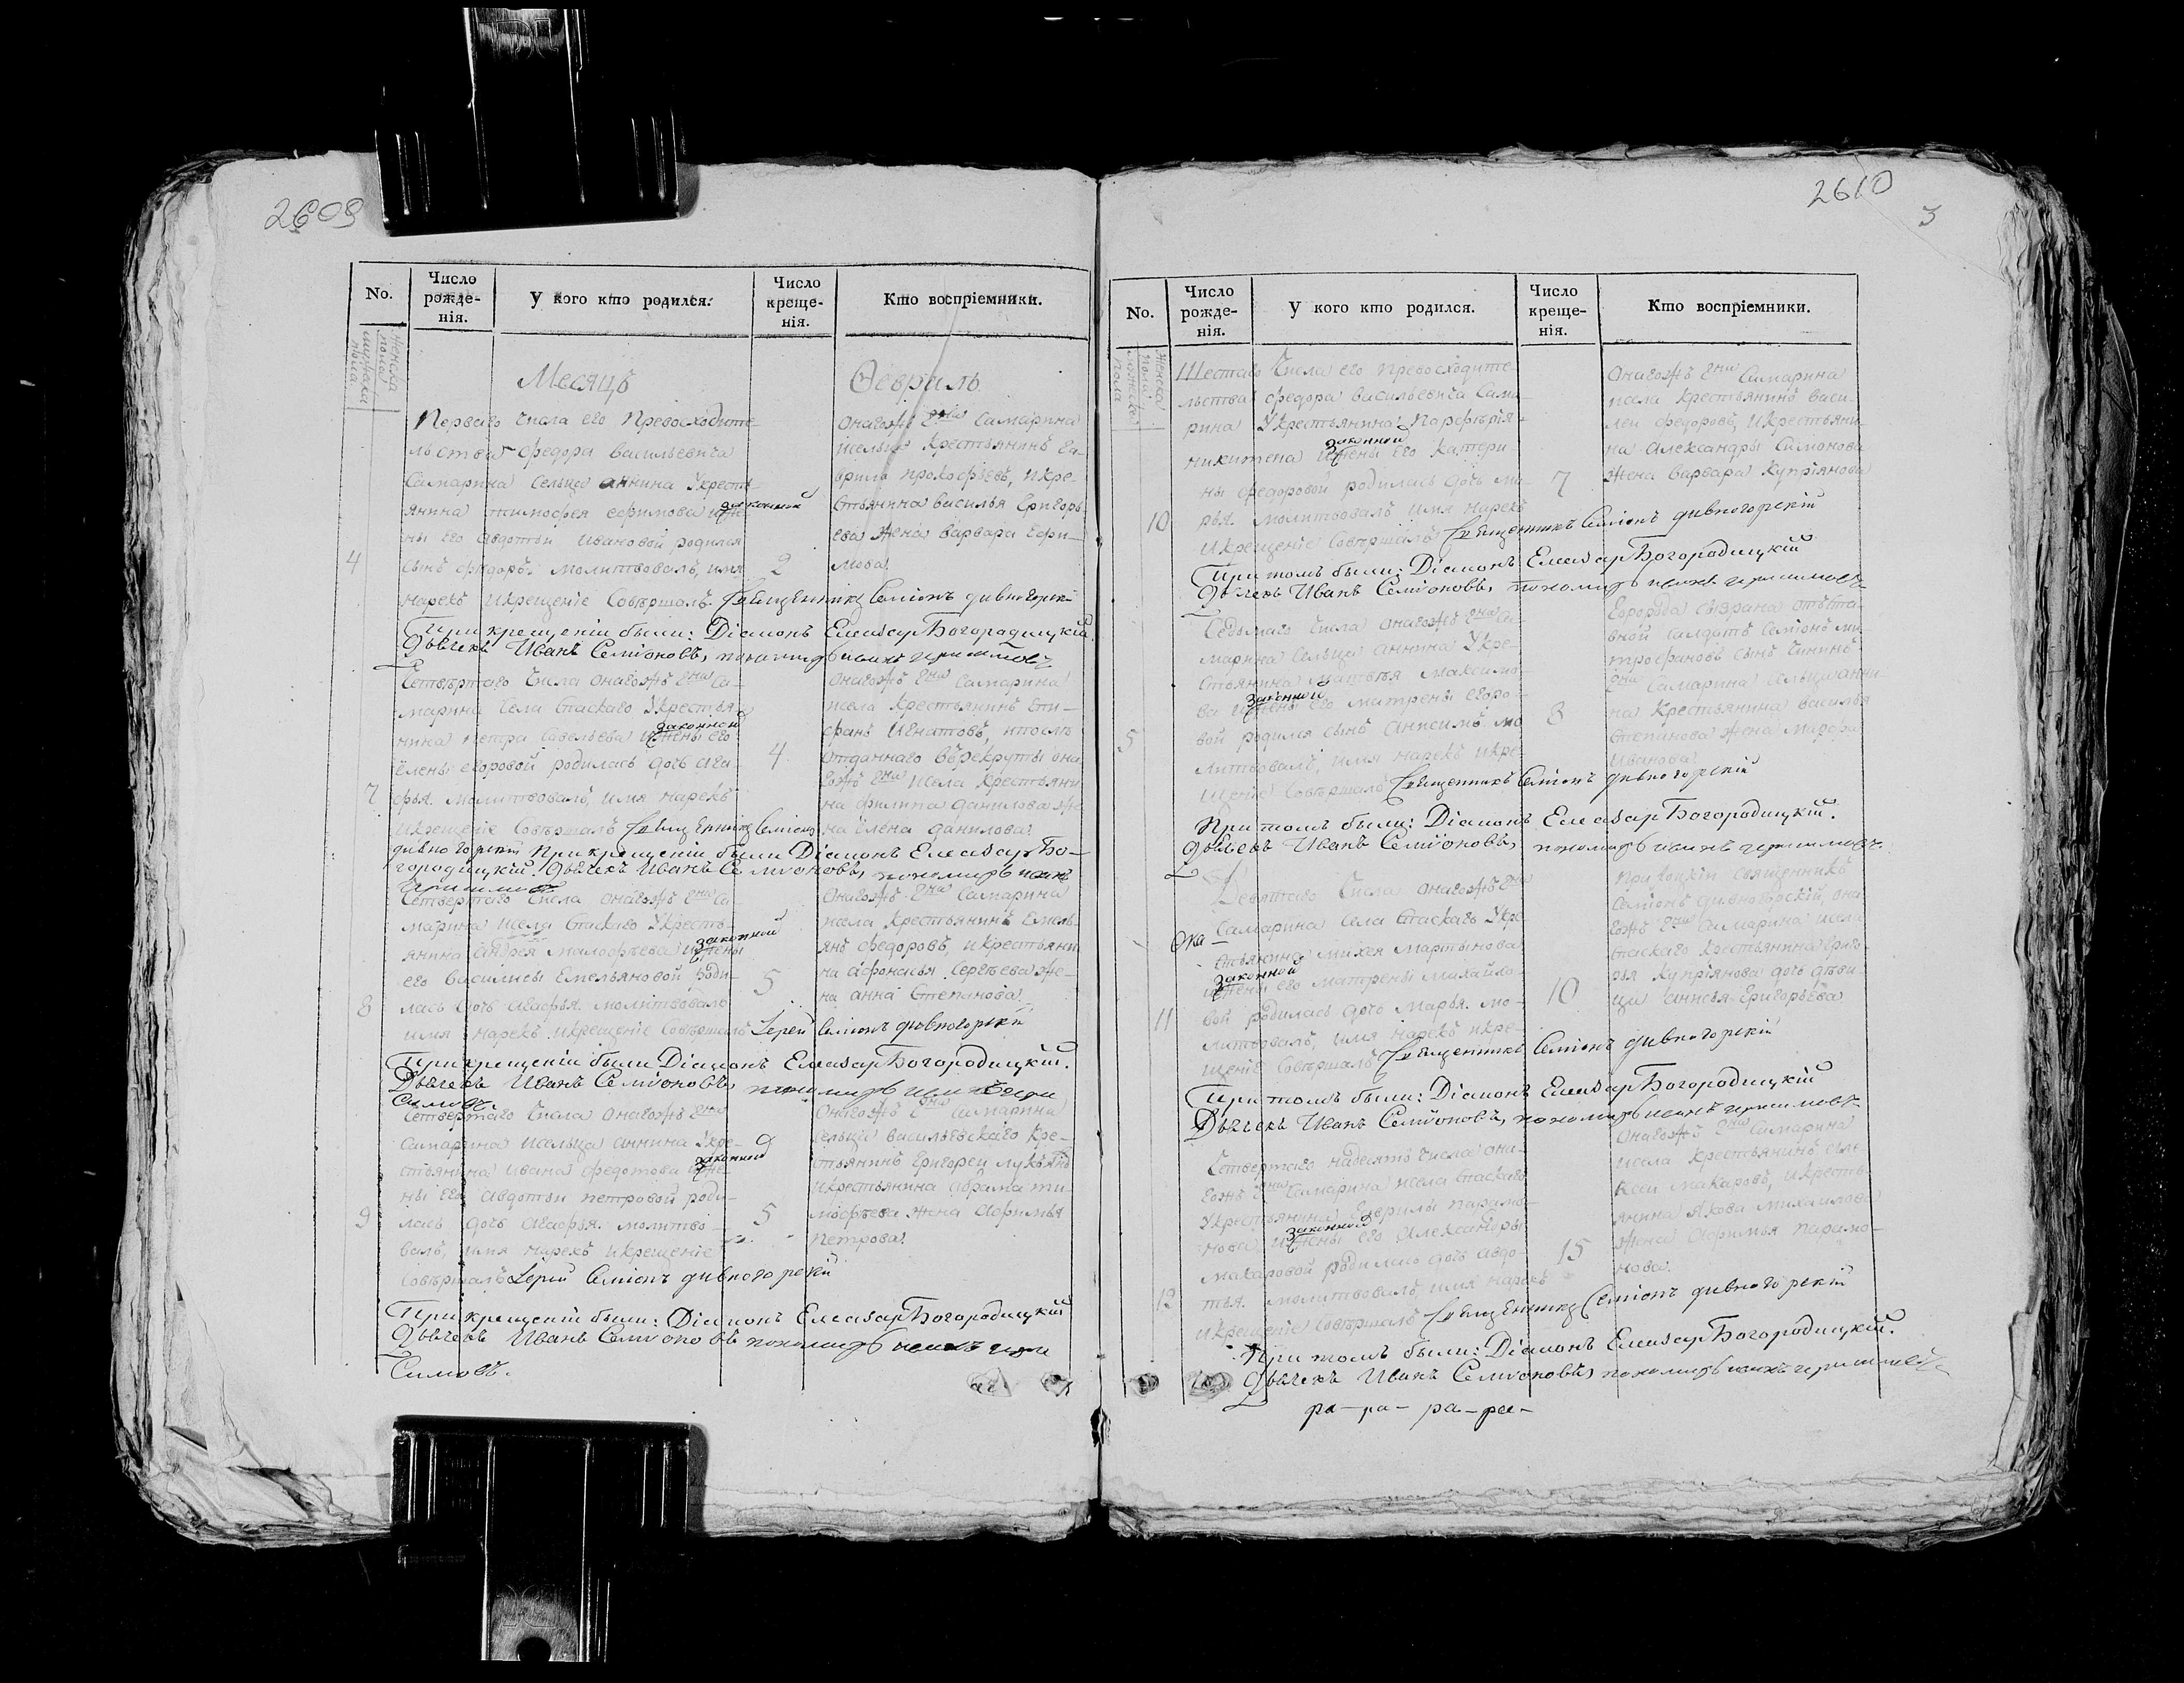 2609
No.
Число рожде-нія.
У кого кто родился.
Число креще-нія.
Кто воспріемники.
Женска пола
мужеска пола
Месяцъ
Февраль
Перваго числа его Превосходите-
льства федора васильевича
Самарина сельца аннина Укресть-
янина тимофея ефимова иже-
законной
ны его авдотьи ивановой родился
4
сынъ федоръ. молитвовалъ, имя
2
нарекъ икрещеніе Совѣршалъ Священникъ Симіонъ дивногорскій
онагожъ Самарина
исельца крестьянинъ Га-
врила прокофьевъ, икре-
стьянина василья Григорь-
ева жена варвара Ефи-
мова.
При крещеніи были: Діаконъ Елеазаръ Богородицкій.
Дьячекъ Иванъ Семіоновъ, пономарь
Четвѣртаго числа онагожъ Са-
марина села Спаскаго Укрестья-
нина петра Савельева ижены его
законной
елены егоровой родилась дочь ага-
4
7
фья. молитвовалъ, имя нарекъ
икрещеніе Совѣршалъ Священникъ Симіонъ
онагожъ Самарина
исела крестьянинъ Сти-
фанъ Игнатовъ, ипослѣ
отданнаго въ рекруты она-
гожъ исела крестьяни-
на филипа данилова же-
на елена данилова.
дивногорскій При крещеніи были Діаконъ Елеазаръ Бо-
городицкій. Дьячекъ Иванъ Семіоновъ, пономарь
Четвертаго числа онагожъ Са-
марина исела Спаскаго Укресть-
янина андрея малофѣева ижены
законной
его василисы Емельяновой роди-
5
8
лась дочь агафья. молитвовалъ
имя нарекъ икрещеніе Совѣршалъ Іерей Симіонъ дивногорскій
онагожъ Самарина
исела крестьянинъ Емель-
янъ федоровъ, икрестьяни-
на афонасья Сергѣева же-
на анна Степанова.
При крещеніи были Діаконъ Елеазаръ Богородицкій.
Дьячекъ Иванъ Семіоновъ, пономарь
Четвертаго числа онагожъ
Самарина исельца аннина Укре-
стьянина ивана федотова иже-
законной
ны его авдотьи петровой роди-
9
лась дочь агафья. молитво-
5
валъ, имя нарекъ икрещеніе
Совѣршалъ Іерей Симіонъ дивногорскій
онагожъ Самарина
сельца васильевскаго кре-
стьянинъ Григореи лукьянъ
икрестьянина абрама ти-
мофѣева жена афимья
петрова.
При крещеніи были: Діаконъ Елеазаръ Богородицкій
Дьячекъ Иванъ Семіоновъ пономарь
Симовъ.
2610
3
No.
Число рожде-нія.
У кого кто родился.
Число креще-нія.
Кто воспріемники.
Женска пола
мужеска пола
Шестаго числа его превосходите-
льства федора васильевича Сама-
рина Укрестьянина Парфирія
законной
никитена ижены его катери-
ны федоровой родилась дочь ма-
7
10
рья. молитвовалъ имя нарекъ
икрещеніе Совѣршалъ Священникъ Симіонъ дивногорскій
онагожъ Самарина
исела крестьянинъ васи-
леи федоровъ, икрестьяни-
на александры Симонова
жена варвара Купріянова
При томъ были: Діаконъ Елеазаръ Богородицкій
Дьячекъ Иванъ Семіоновъ, пономарь
Седьмаго числа онагожъ Са-
марина сельца аннина Укре-
стьянина матвѣя максимо-
законной
ва ижены его матрены егоро-
8
5
вой родился сынъ анисимъ мо-
литвовалъ, имя нарекъ икре-
щеніе Совѣршалъ Священникъ Симіонъ дивногорскій
Города Сызрана отъста-
вной салдатъ Семіонъ ми-
трофановъ сынъ
Самарина сельца анни-
на крестьянина василья
Степанова жена марфа
Иванова.
При томъ были: Діаконъ Елеазаръ Богородицкій.
Дьячекъ Иванъ Семіоновъ, пономарь
Девятаго числа онагожъ
Самарина села Спаскаго Укре-
стьянина михея мартынова
законной
ижены его матрены михайло-
10
11
вой родилась дочь марья. мо-
литвовалъ, имя нарекъ икре-
щеніе Совѣршалъ Священникъ Симіонъ дивногорскій
священникъ
Семіонъ дивногорскій, она-
гожъ Самарина исела
Спаскаго крестьянина Григо-
рья Купріянова дочь дѣви-
ца анисья Григорьева
При томъ были: Діаконъ Елеазаръ Богородицкій
Дьячекъ Иванъ Семіоновъ, пономарь
Четвертаго надесять числа она-
гожъ Самарина исела Спаскаго
Укрестьянина Гаврилы парамо-
законной
нова ижены его александры
макаровой родилась дочь авдо-
15
12
тья. молитвовалъ, имя нарекъ
икрещеніе Совѣршалъ Священникъ Симіонъ дивногорскій
онагожъ Самарина
исела крестьянинъ але-
ксеи макаровъ, икресть-
янина Якова михаилова
жена афимья парамо-
нова.
При томъ были: Діаконъ Елеазаръ Богородицкій.
Дьячекъ Иванъ Семіоновъ, пономарь
ра-ра-ра-ра-